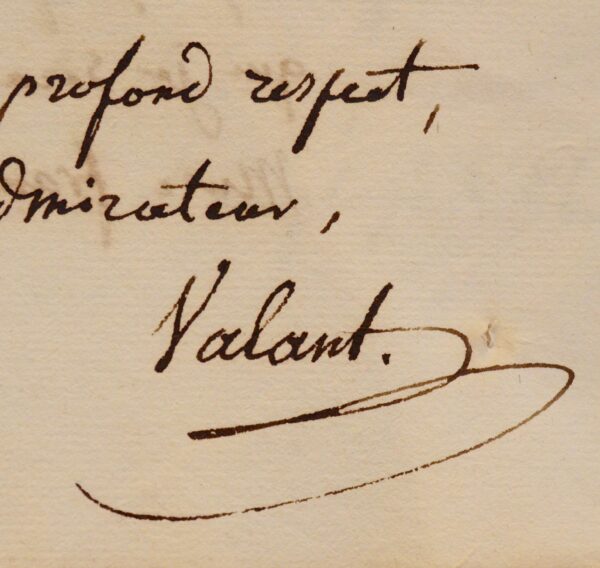 profond respect,
admirateur,
Valant.